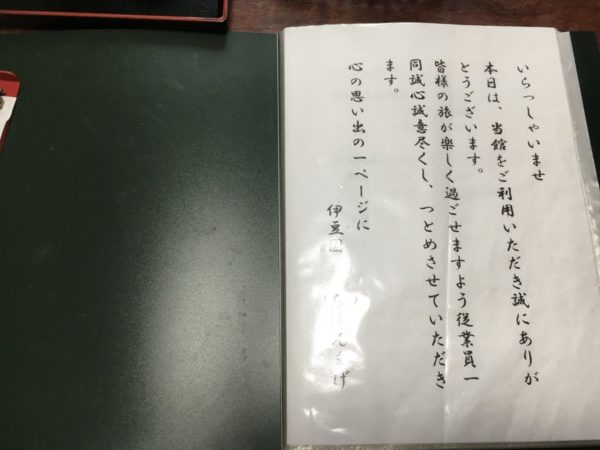 いらっしゃいませ
本日は、当館をご利用いただき誠にありが
とうございます。
皆様の旅が楽しく過ごせますよう従業員一
同誠心誠意尽くし、つとめさせていただき
ます。
心の思い出の一ページに
伊豆